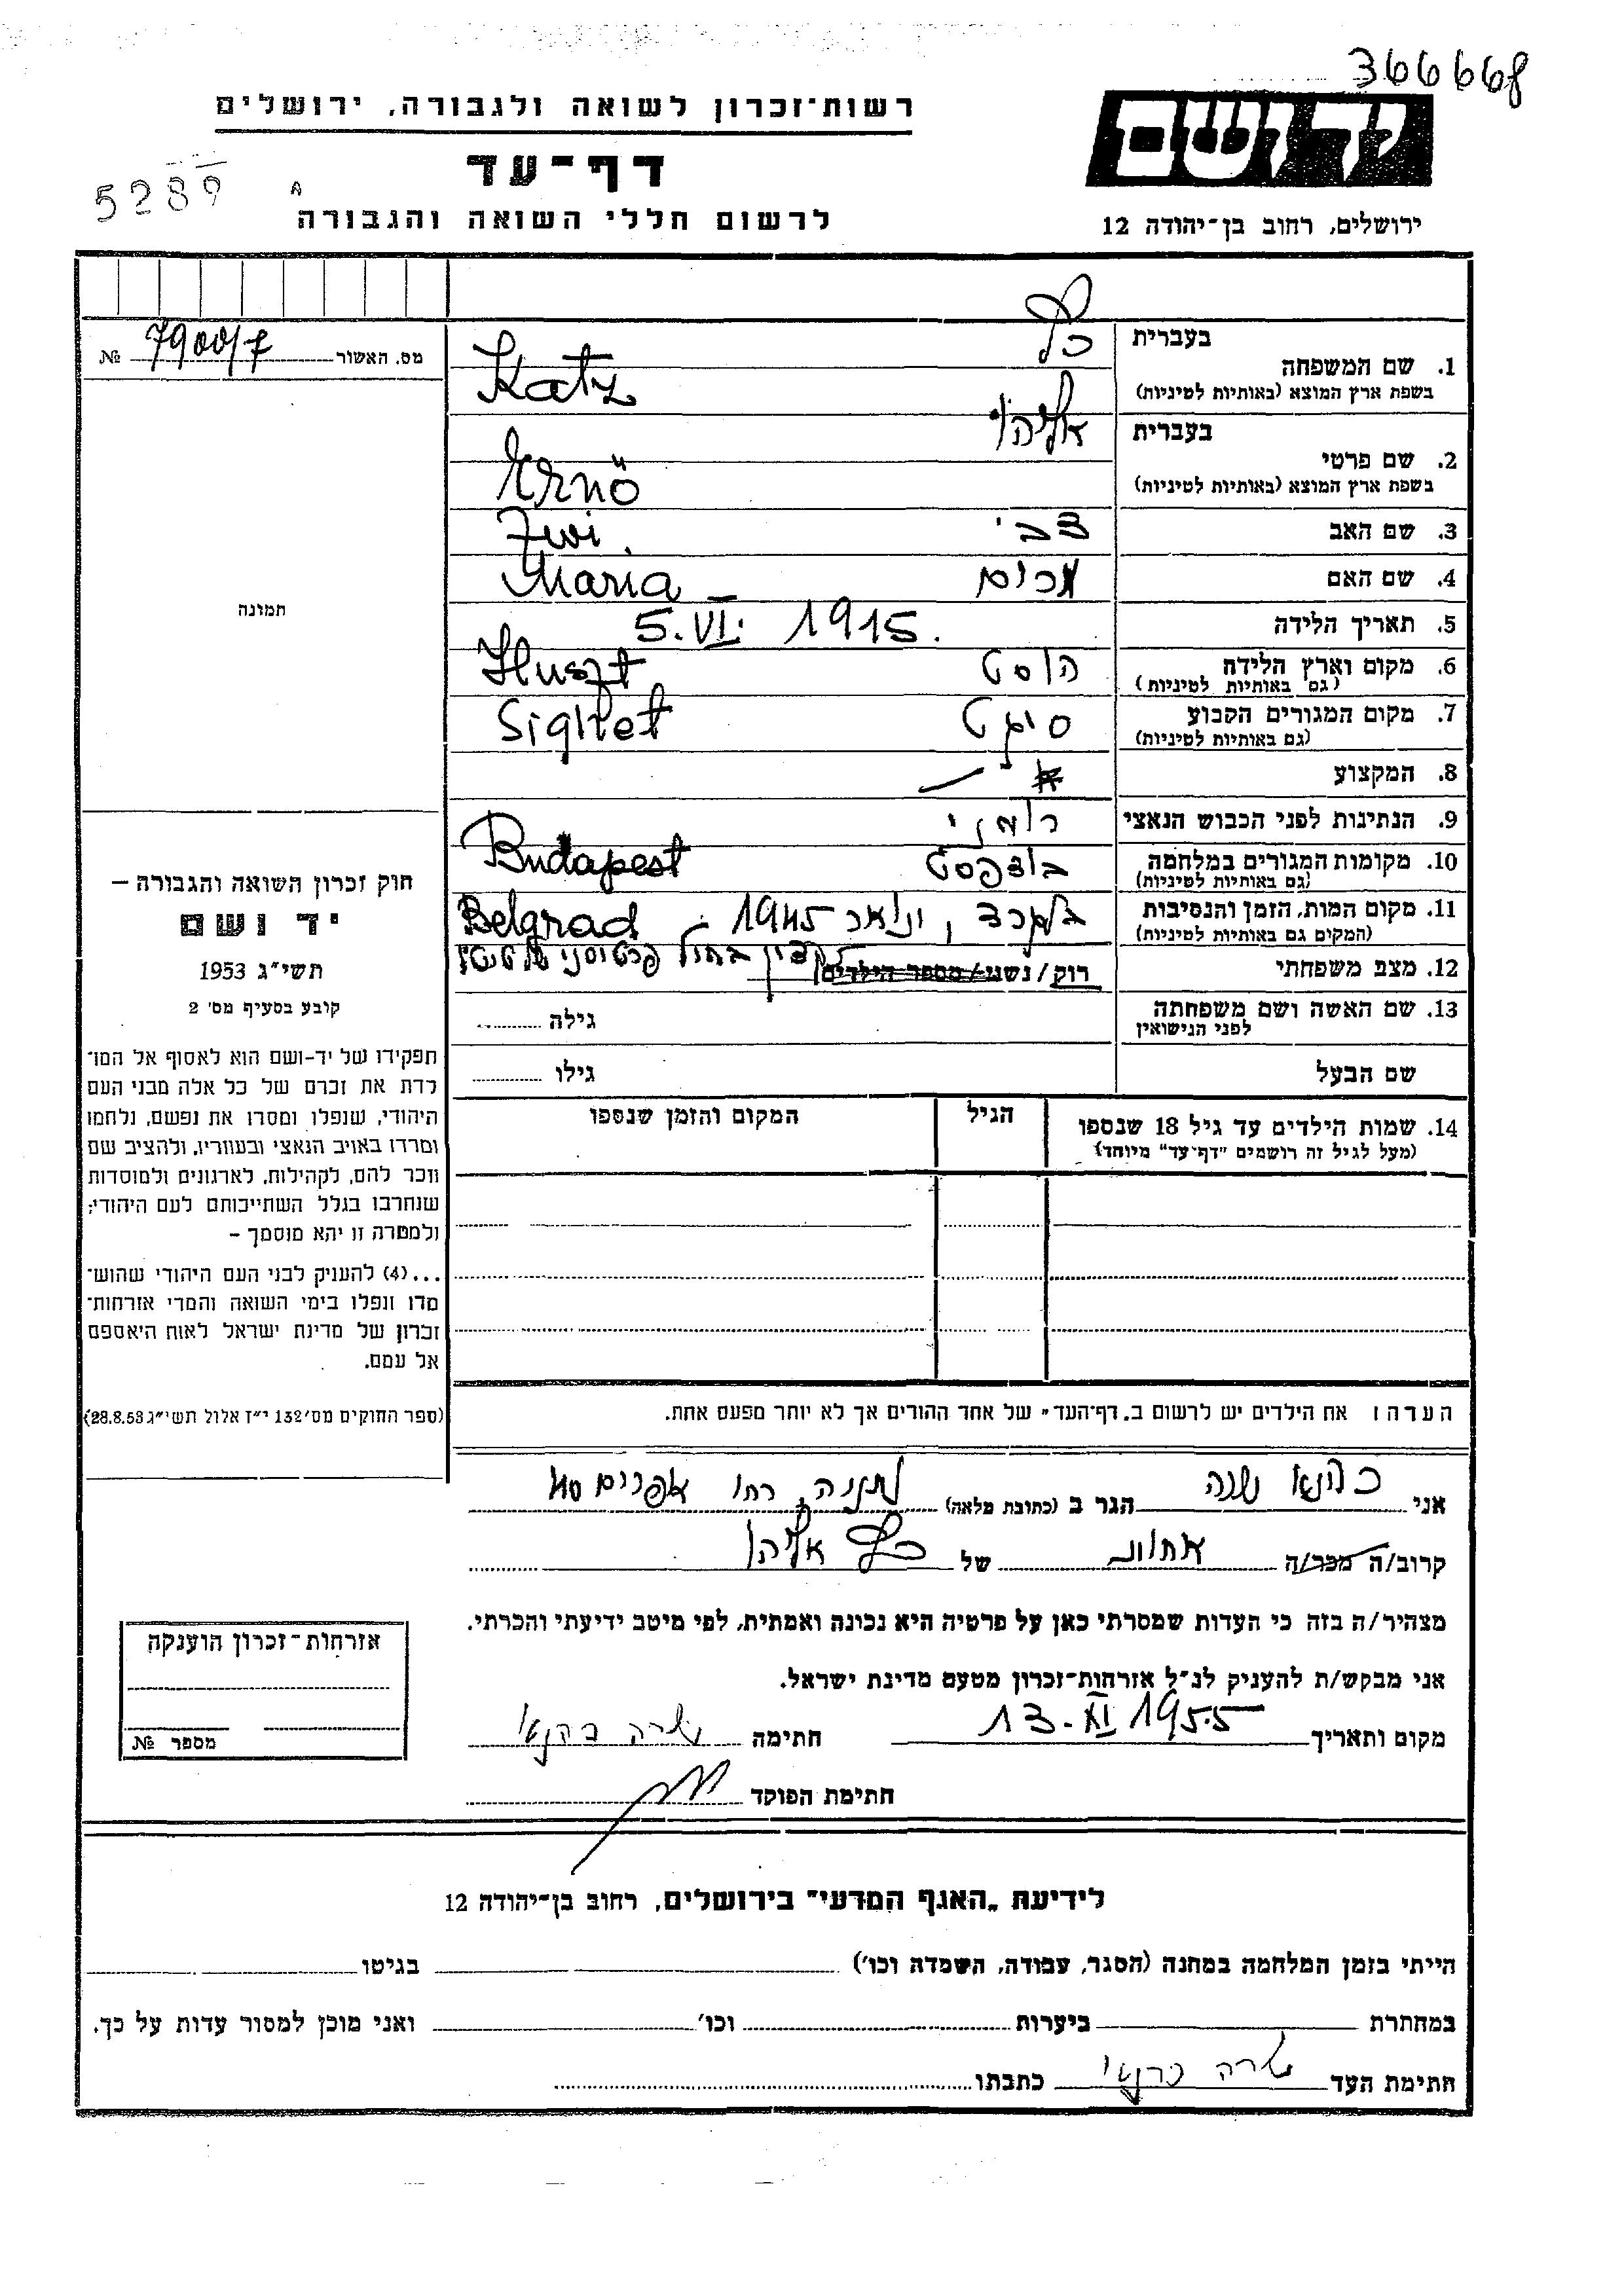 366668
רשות־זכרון לשואה ולגבורה, ירושלים
דף־עד
5289
לרשום חללי השואה והגבורה
יד ושם
ירושלים, רחוב בן־יהודה 12
מס. האשור 7900/7 №
1. שם המשפחה
בעברית כץ
בשפת ארץ המוצא (באותיות לטיניות) Katz
2. שם פרטי
בעברית אליהו
בשפת ארץ המוצא (באותיות לטיניות) Ernö
3. שם האב צבי Zwi
4. שם האם מרים Maria
5. תאריך הלידה 5. VI. 1915.
6. מקום וארץ הלידה הוסט Huszt
(גם באותיות לטיניות)
7. מקום המגורים הקבוע סיגט Sighet
(גם באותיות לטיניות)
8. המקצוע
9. הנתינות לפני הכבוש הנאצי רומני
10. מקומות המגורים במלחמה בודפסט Budapest
(גם באותיות לטיניות)
11. מקום המות, הזמן והנסיבות בלגרד, ינואר 1945 - Belgrad
(המקום גם באותיות לטיניות)
12. מצב משפחתי רוק/נשוי/מספר הילדים
13. שם האשה ושם משפחתה גילה
לפני הנישואין
שם הבעל גילו
14. שמות הילדים עד גיל 18 שנספו הגיל המקום והזמן שנספו
(מעל לגיל זה רושמים "דף־עד" מיוחד)
תמונה
חוק זכרון השואה והגבורה –
יד ושם
תשי״ג 1953
קובע בסעיף מס׳ 2
תפקידו של יד-ושם הוא לאסוף אל המו־
לדת את זכרם של כל אלה מבני העם
היהודי, שנפלו ומסרו את נפשם, נלחמו
ומרדו באויב הנאצי ובעוזריו, ולהציב שם
וזכר להם, לקהילות, לארגונים ולמוסדות
שנחרבו בגלל השתייכותם לעם היהודי;
ולמטרה זו יהא מוסמך –
...(4) להעניק לבני העם היהודי שהוש־
מדו ונפלו בימי השואה והמרי אזרחות־
זכרון של מדינת ישראל לאות היאספם
אל עמם.
(ספר החוקים מס׳ 132 י״ז אלול תשי״ג 28.8.53)
הערה: את הילדים יש לרשום ב„דף־העד" של אחד ההורים אך לא יותר מפעם אחת.
אני שרה הגר ב (כתובת מלאה) נתניה, רחו אפרים
קרוב/ה מכר/ה אחות של כץ אליהו
מצהיר/ה בזה כי העדות שמסרתי כאן על פרטיה היא נכונה ואמתית, לפי מיטב ידיעתי והכרתי.
אני מבקש/ת להעניק לנ״ל אזרחות־זכרון מטעם מדינת ישראל.
מקום ותאריך 13. XI 1955 חתימה שרה
חתימת הפוקד
אזרחות־זכרון הוענקה
מספר №
לידיעת „האגף המדעי" בירושלים, רחוב בן־יהודה 12
הייתי בזמן המלחמה במחנה (הסגר, עבודה, השמדה וכו׳) בגיטו
במחתרת ביערות וכו׳ ואני מוכן למסור עדות על כך.
חתימת העד שרה כתבתו